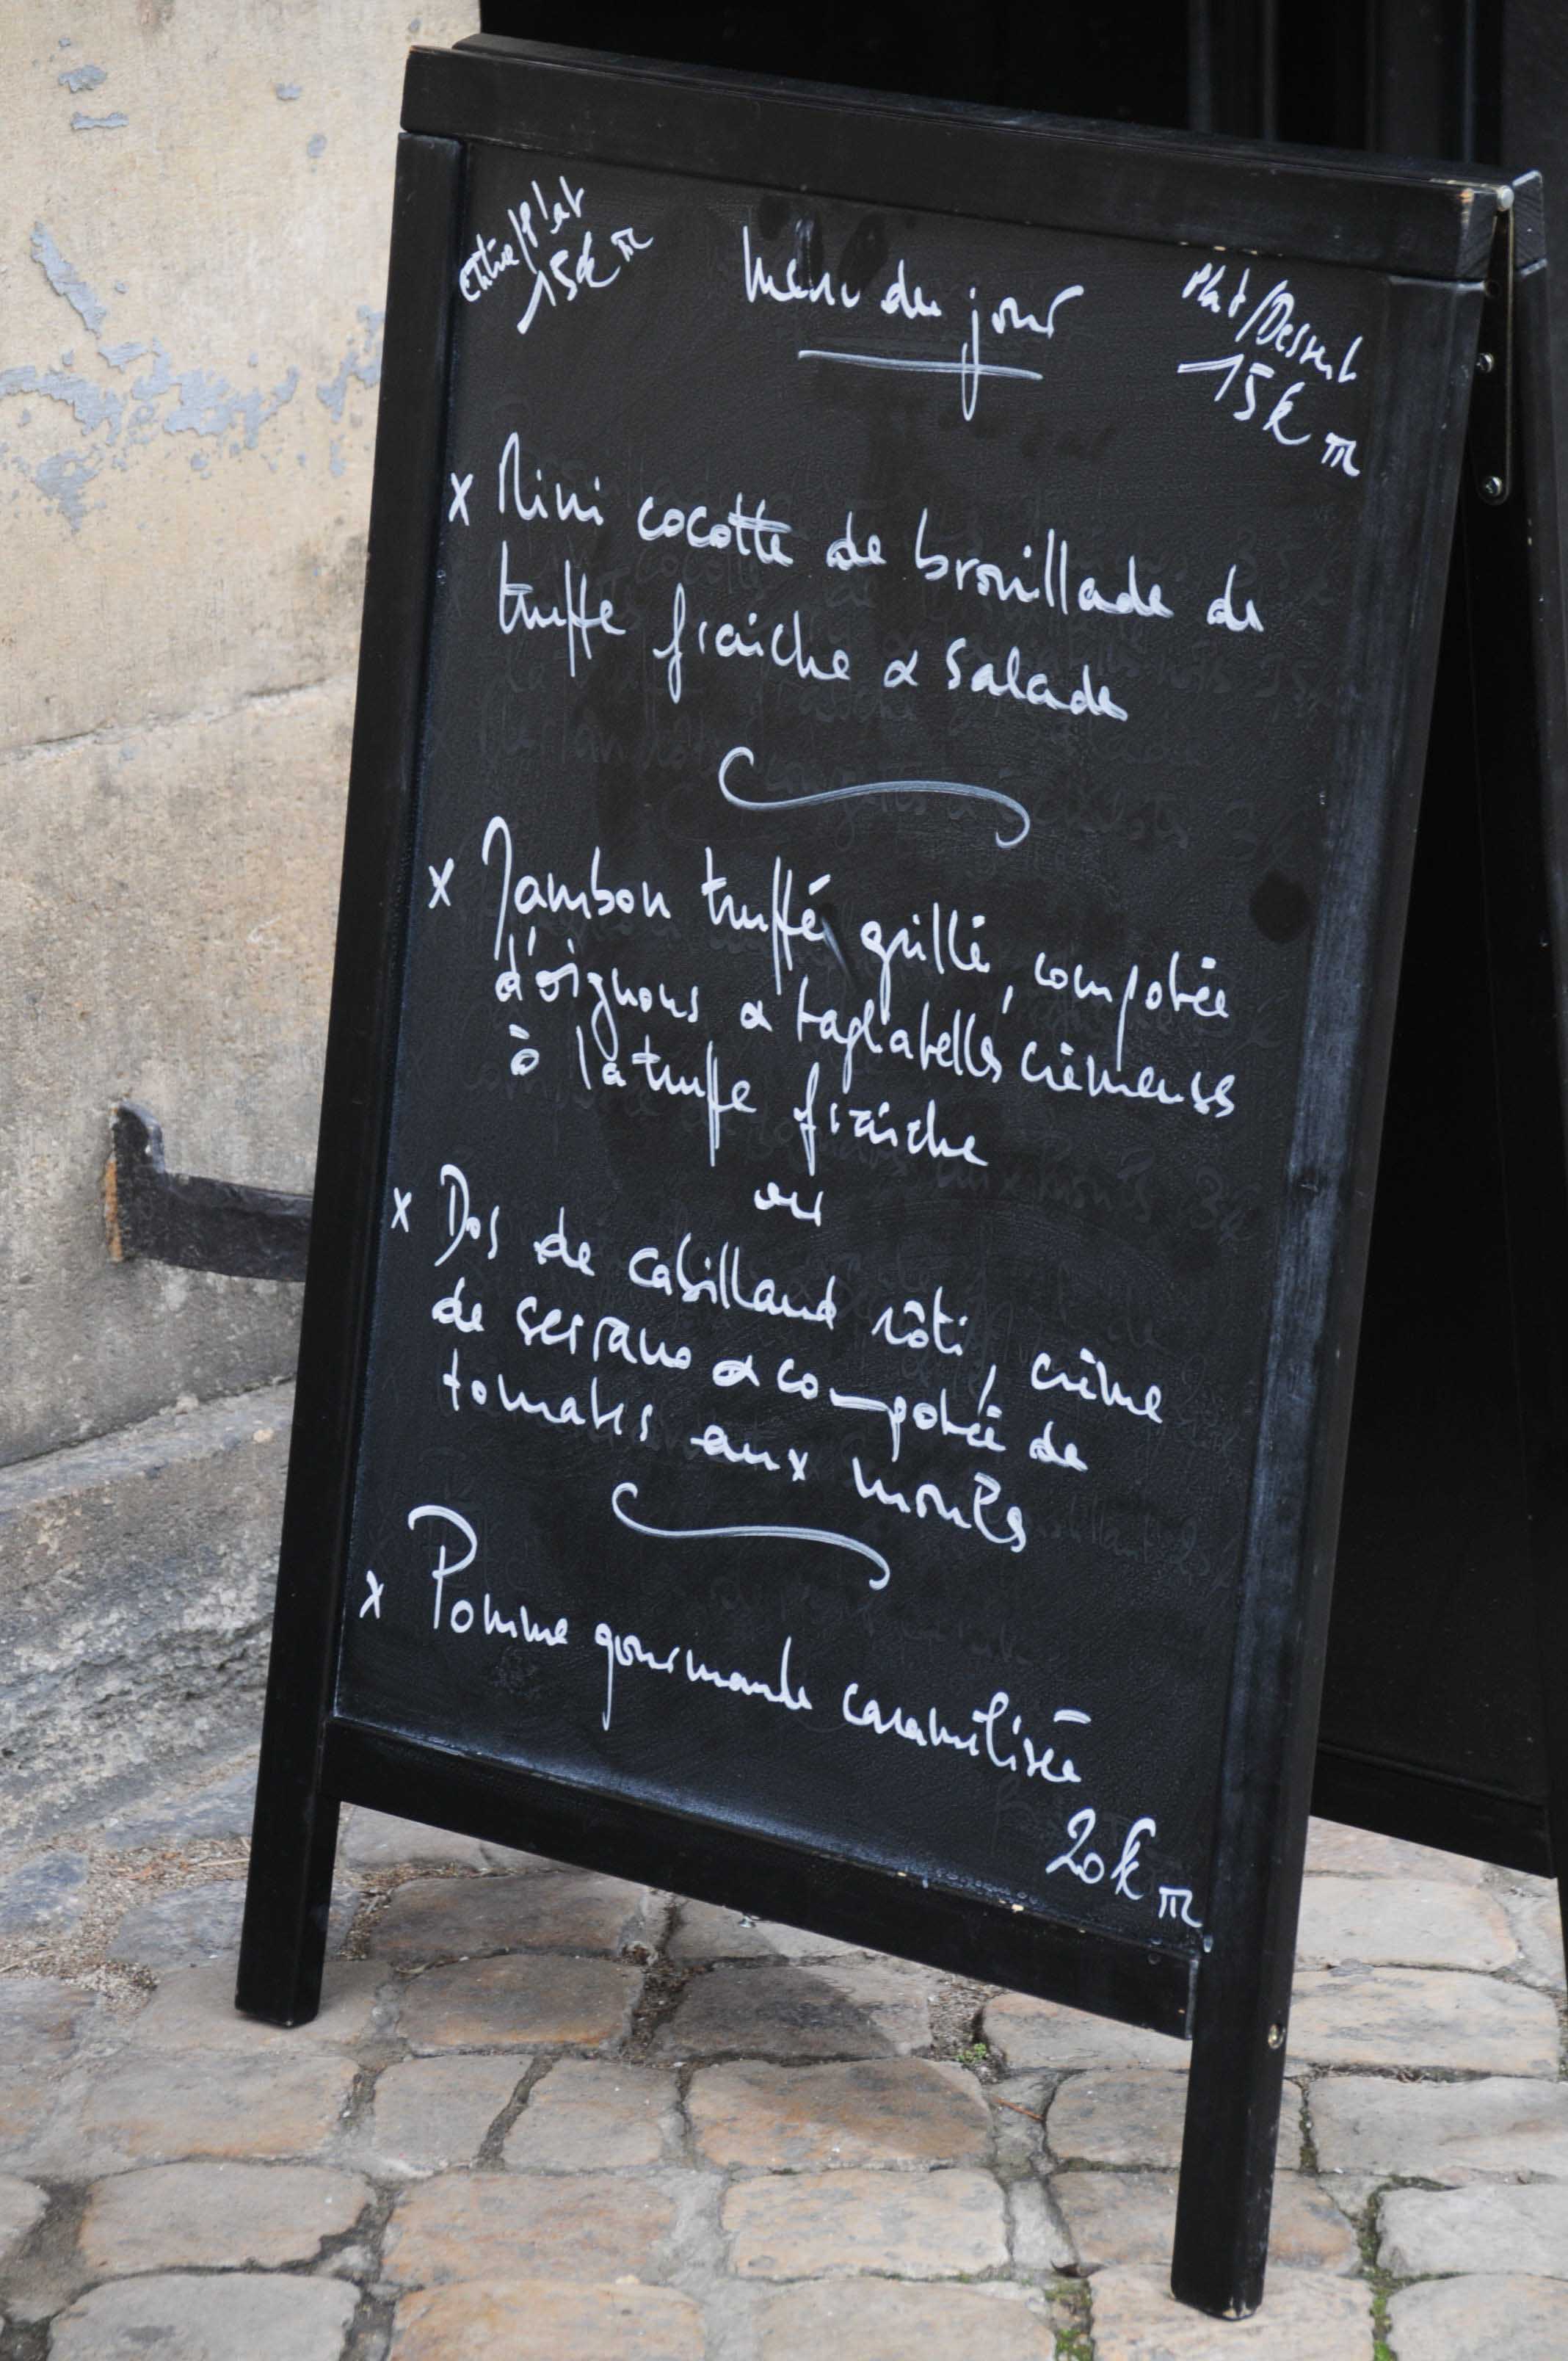 Entrée/Plat
15€ TTC
Menu du jour
Plat/Dessert
15€ TTC
x Mini cocotte de brouillade de
truffe fraîche & salade
x Jambon truffé grillé, compotée
d'oignons & tagliatelles crémeuses
à la truffe fraîche
ou
x Dos de cabillaud rôti, crème
de serrano & compotée de
tomates aux moules
x Pomme gourmande caramélisée
20€ TTC